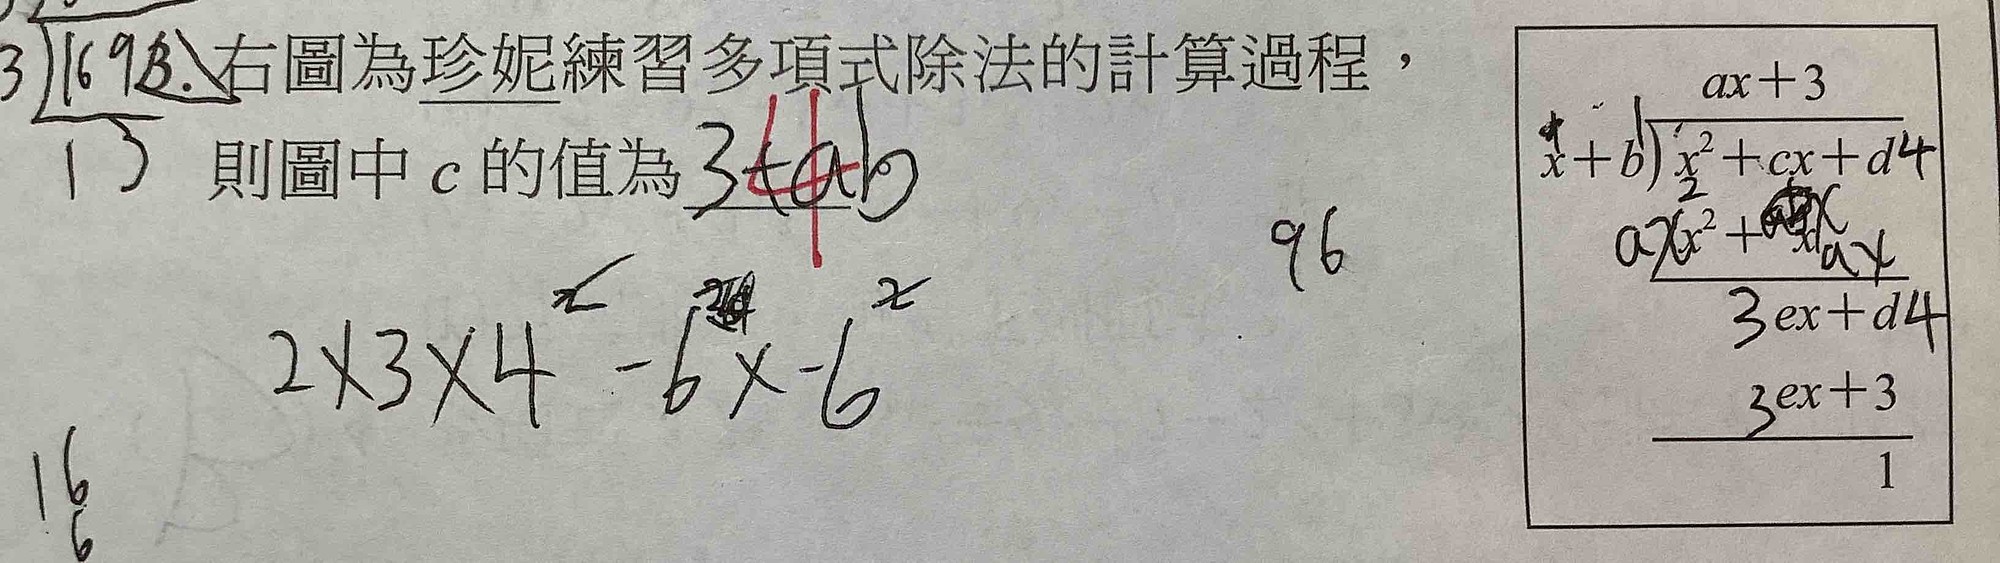 3 169 3. 右圖為珍妮練習多項式除法的計算過程，
13 則圖中 c 的值為 3+ab 4
2×3×4² -6 x -6²
96
16
6
ax+3
x+b) x²+cx+d4
ax x²+ x ax
3ex+d4
3ex+3
1